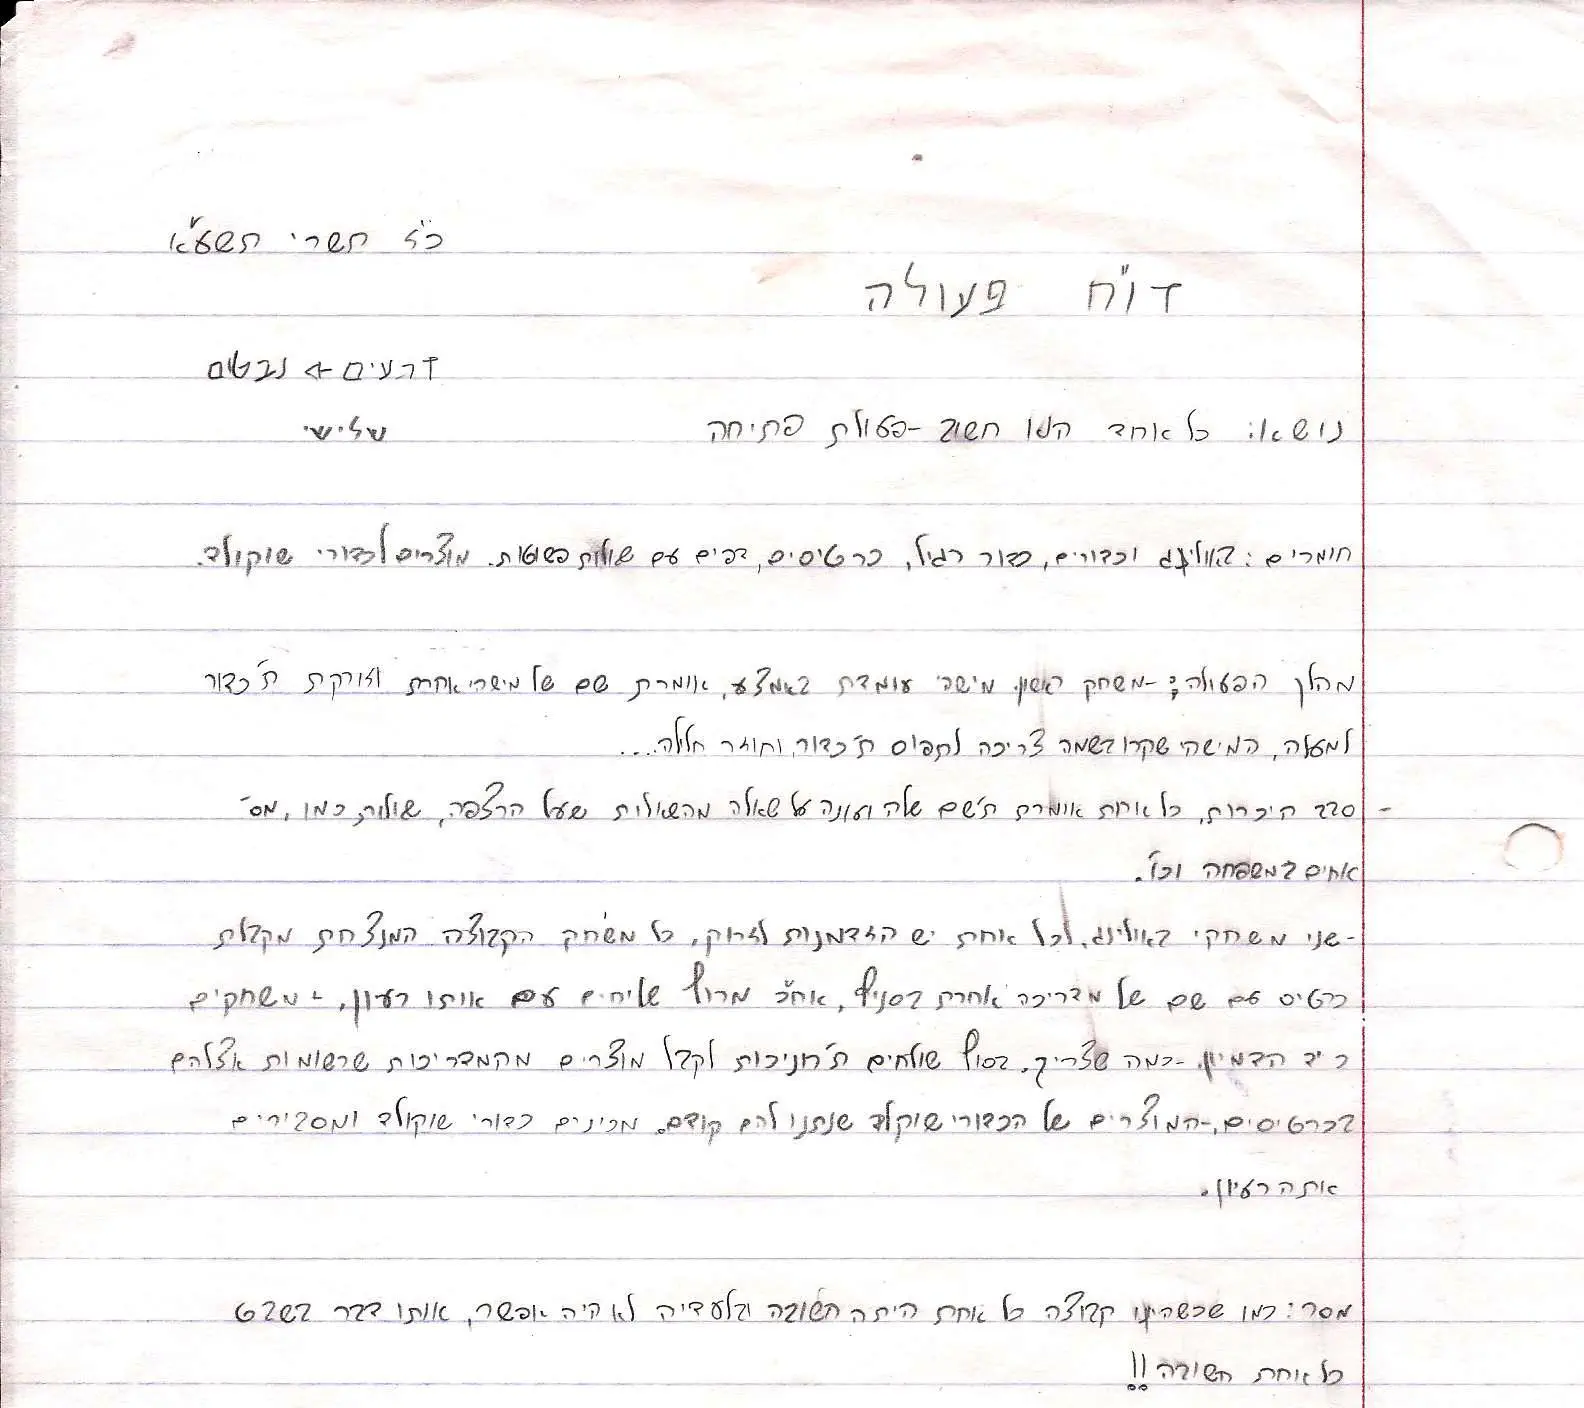 כ"ז תשרי תשע"א
דו"ח פעולה
זרעים → נבטים
נושא: כל אחד הנו חשוב - פעולת פתיחה
שלישי
חומרים: באולינג וכדורים, כדור רגיל, כרטיסים, דפים עם שאלות פשוטות. מוצרים לכדורי שוקולד.
מהלך הפעולה: - משחק ראשון. מישהי עומדת באמצע, אומרת שם של מישהי אחרת וזורקת ת'כדור
למעלה, המישהי שקראו בשמה צריכה לתפוס ת'כדור, וחוזר חלילה....
- סבב היכרות, כל אחת אומרת ת'שם שלה ועונה על שאלה מהשאלות שעל הרצפה, שאלות כמו, מס'
אחים במשפחה וכו'.
- שני משחקי באולינג, לכל אחת יש הזדמנות לזרוק, כל משחק הקבוצה המנצחת מקבלת
כרטיס עם שם של מדריכה אחרת בסניף, אח"כ מרוץ שליחים עם אותו רעיון, - משחקים
כיד הדמיון - כמה שצריך. בסוף שולחים ת'חניכות לקבל מוצרים מהמדריכות שרשומות אצלהם
בכרטיסים, - המוצרים של הכדורי שוקולד שנתנו להם קודם. מכינים כדורי שוקולד ומסבירים
את הרעיון.
מסר: כמו שכשהיינו קבוצה כל אחת היתה חשובה ובלעדיה לא היה אפשר, אותו דבר בשבט
כל אחת חשובה!!